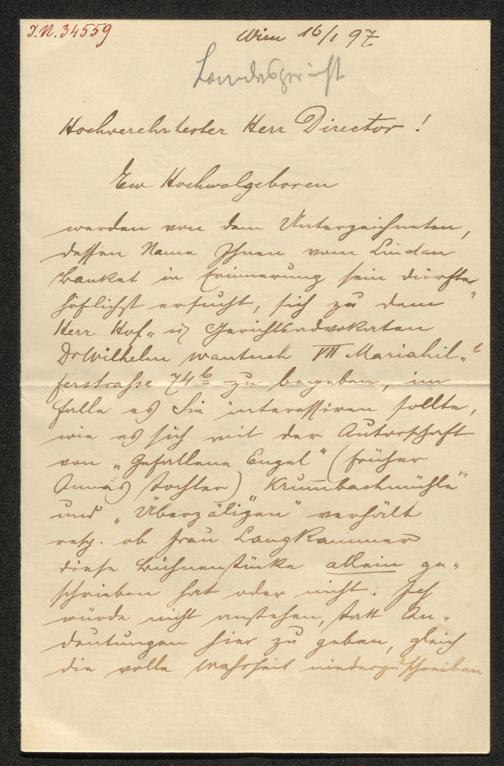 J.N. 34559
Wien 16/1 97
Landesgericht
Hochverehrtester Herr Director!
Ew Hochwolgeboren
werden von dem Unterzeichneten,
dessen Name Ihnen vom Lindau
Banket in Erinnerung sein dürfte,
höflichst ersucht, sich zu dem
Herr Hof- u Gerichtsadvokaten
Dr Wilhelm VII Mariahil-
ferstrasse 74b zu begeben, im
Falle es Sie interessiren sollte,
wie es sich mit der Autorschaft
von „Gefallene Engel" (früher
Annas Tochter) „Krumbachmühle"
und „Überzäligen" verhält
resp. ob Frau Langkammer
diese Bühnenstücke allein ge-
schrieben hat oder nicht. Ich
würde nicht anstehen, statt An-
deutungen hier zu geben, gleich
die volle Wahrheit niederzuschreiben